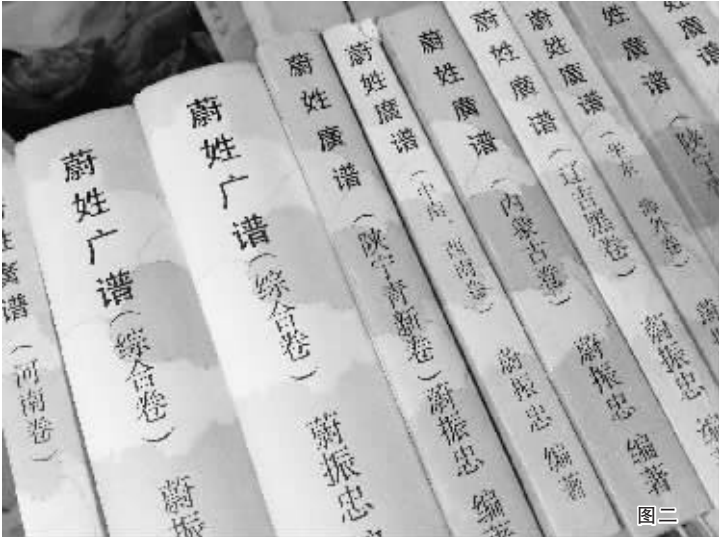 姓廣谱（河南卷）
蔚姓广谱（综合卷）蔚振
蔚姓广谱（综合卷）蔚振忠
蔚姓廣谱（陕宁青新卷）蔚振忠 编著
蔚姓廣谱（中南、西南卷）蔚振忠 编著
蔚姓廣谱（内蒙古卷）蔚振忠 编著
蔚姓廣谱（辽吉黑卷）蔚振忠 编
蔚姓廣谱（华东 海外卷）蔚振
姓廣谱（陕宁
图二